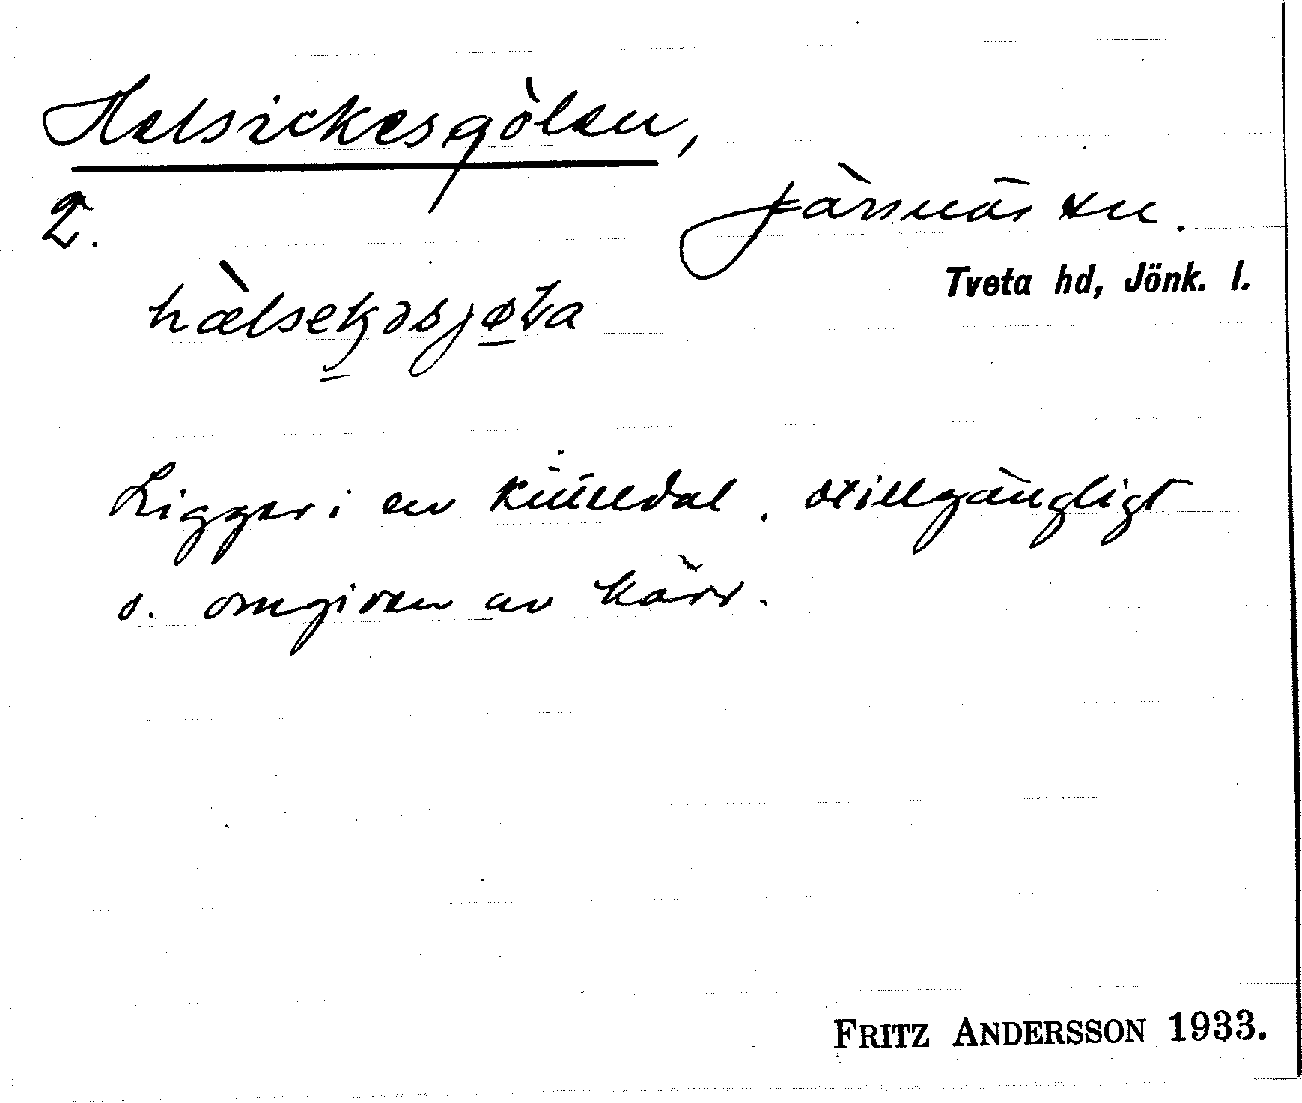 Helsickesgölen,
2.
Järsnäs sn.
Tveta hd, Jönk. l.
hàlsekəsjøla
Ligger i en kitteldal. otillgängligt
o. omgiven av kärr.
FRITZ ANDERSSON 1933.